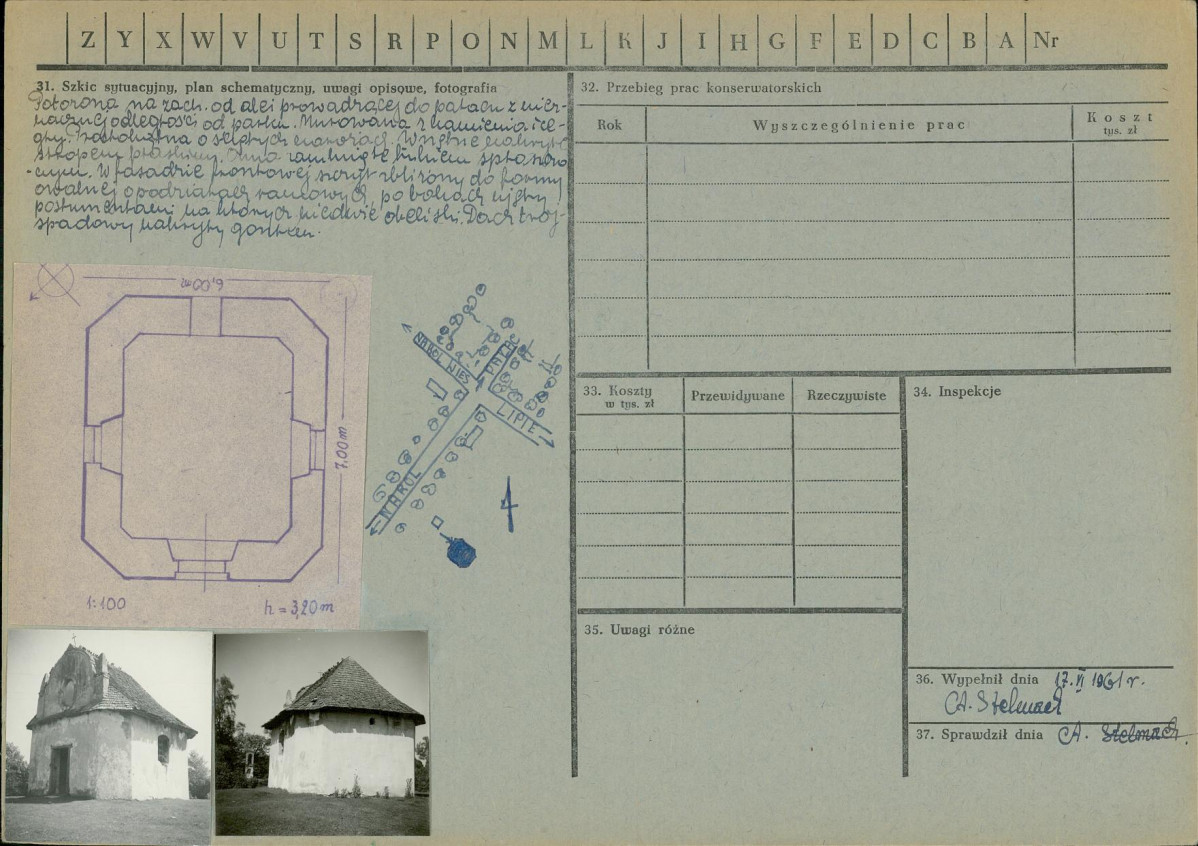 Z Y X W V U T S R P O N M L K J I H G F E D C B A Nr
31. Szkic sytuacyjny, plan schematyczny, uwagi opisowe, fotografia
Położona na zach. od alei prowadzącej do pałacu z nie
znacznej odległości od parku. Murowana z kamienia i ce-
gły. na o ściętych narożach. Wnętrze nakryte
stropem płaskim. Okna zamknięte łukiem spłaszczo
-nym. W fasadzie frontowej szczyt zbliżony do formy
owalnej o podziałach ramowych, po bokach ujęty
postumentami na których niedwie obeliski. Dach trój-
spadowy nakryty gontem.
6,00m
7,00 m
1:100
h = 3,20 m
NAROL WIEŚ
PAŁAC
LIPIE
NAROL
32. Przebieg prac konserwatorskich
Rok
Wyszczególnienie prac
Koszt
tys. zł
33. Koszty
w tys. zł
Przewidywane
Rzeczywiste
34. Inspekcje
35. Uwagi różne
36. Wypełnił dnia 17. VI 1961 r.
A. Stelmach
37. Sprawdził dnia A. Stelmach